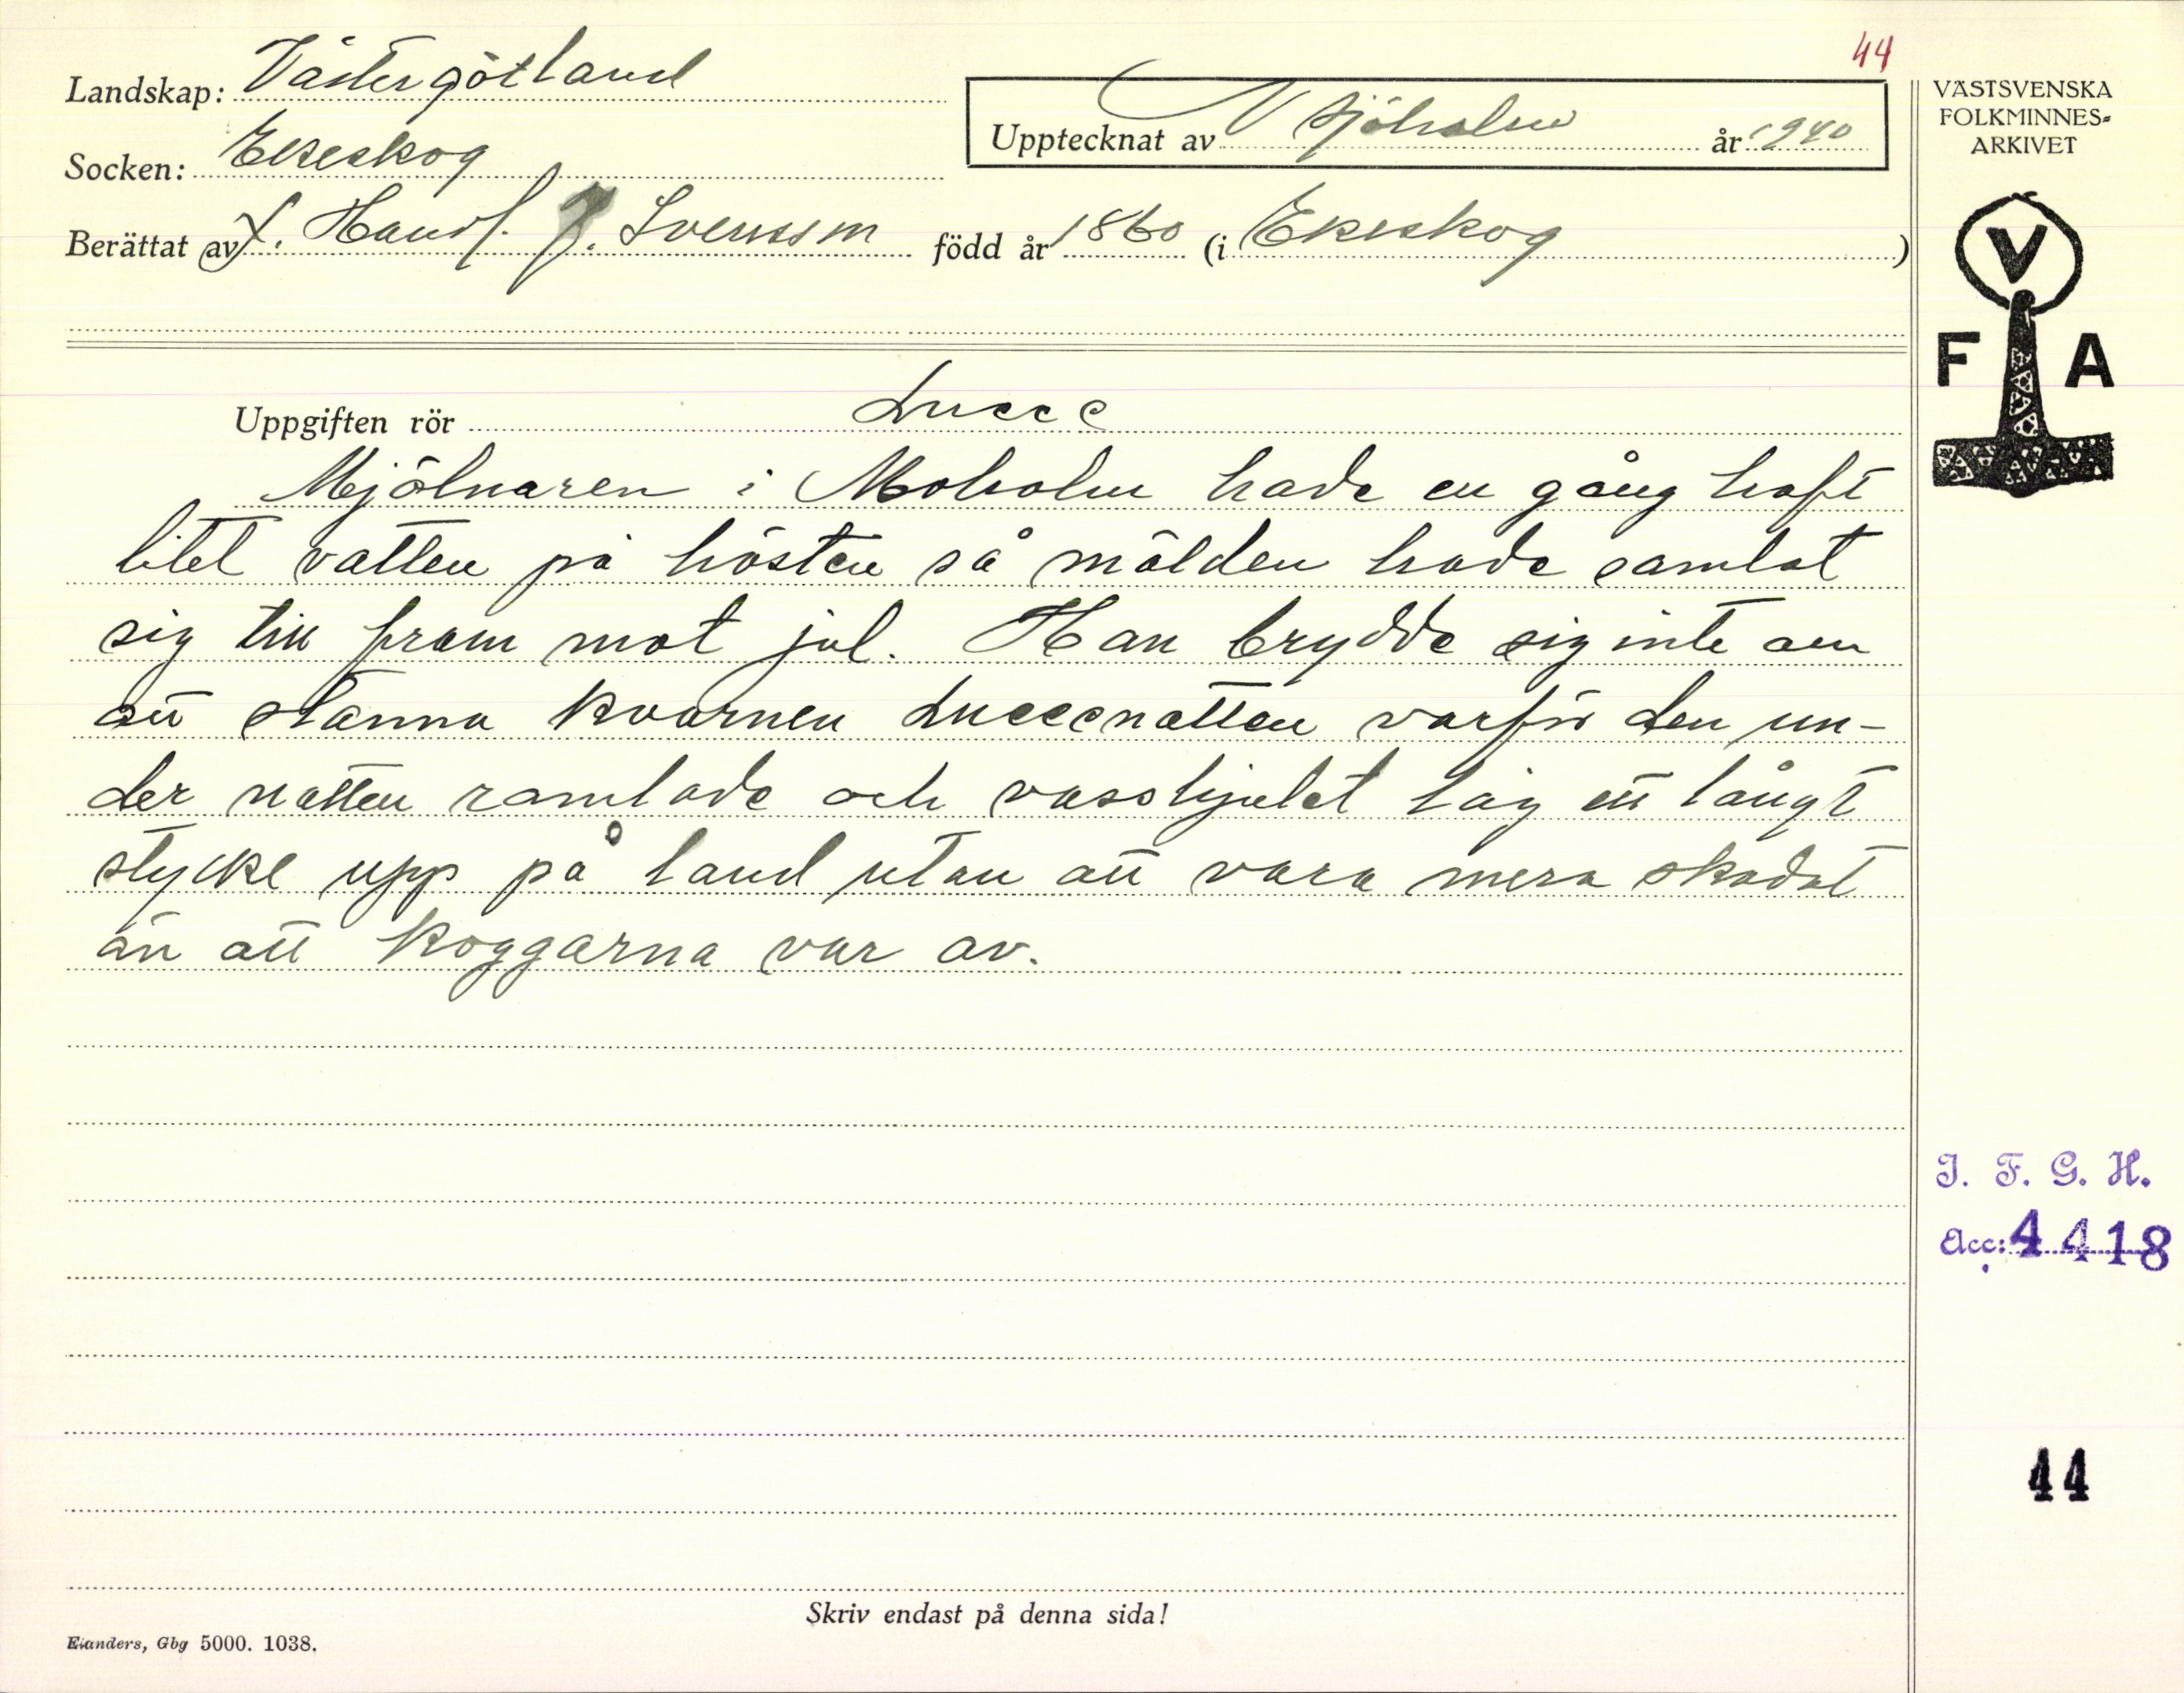 44
Landskap: Västergötland
Upptecknat av N Sjöholm år 1940
Socken: Ekeskog
Berättat av f. Handl. J. Svensson född år 1860 (i Ekeskog)
VÄSTSVENSKA
FOLKMINNES-
ARKIVET
V
F A
Uppgiften rör Lucce
Mjölnaren i Moholm hade en gång haft
litet vatten på hösten så mälden hade samlat
sig till fram mot jul. Han brydde sig inte om
att stanna kvarnen Luccenatten varför den un-
der natten ramlade och vasshjulet låg ett långt
stycke upp på land utan att vara mera skadat
än att koggarna var av.
I. F. G. H.
Acc: 4418
44
Skriv endast på denna sida!
Elanders, Gbg 5000. 1038.